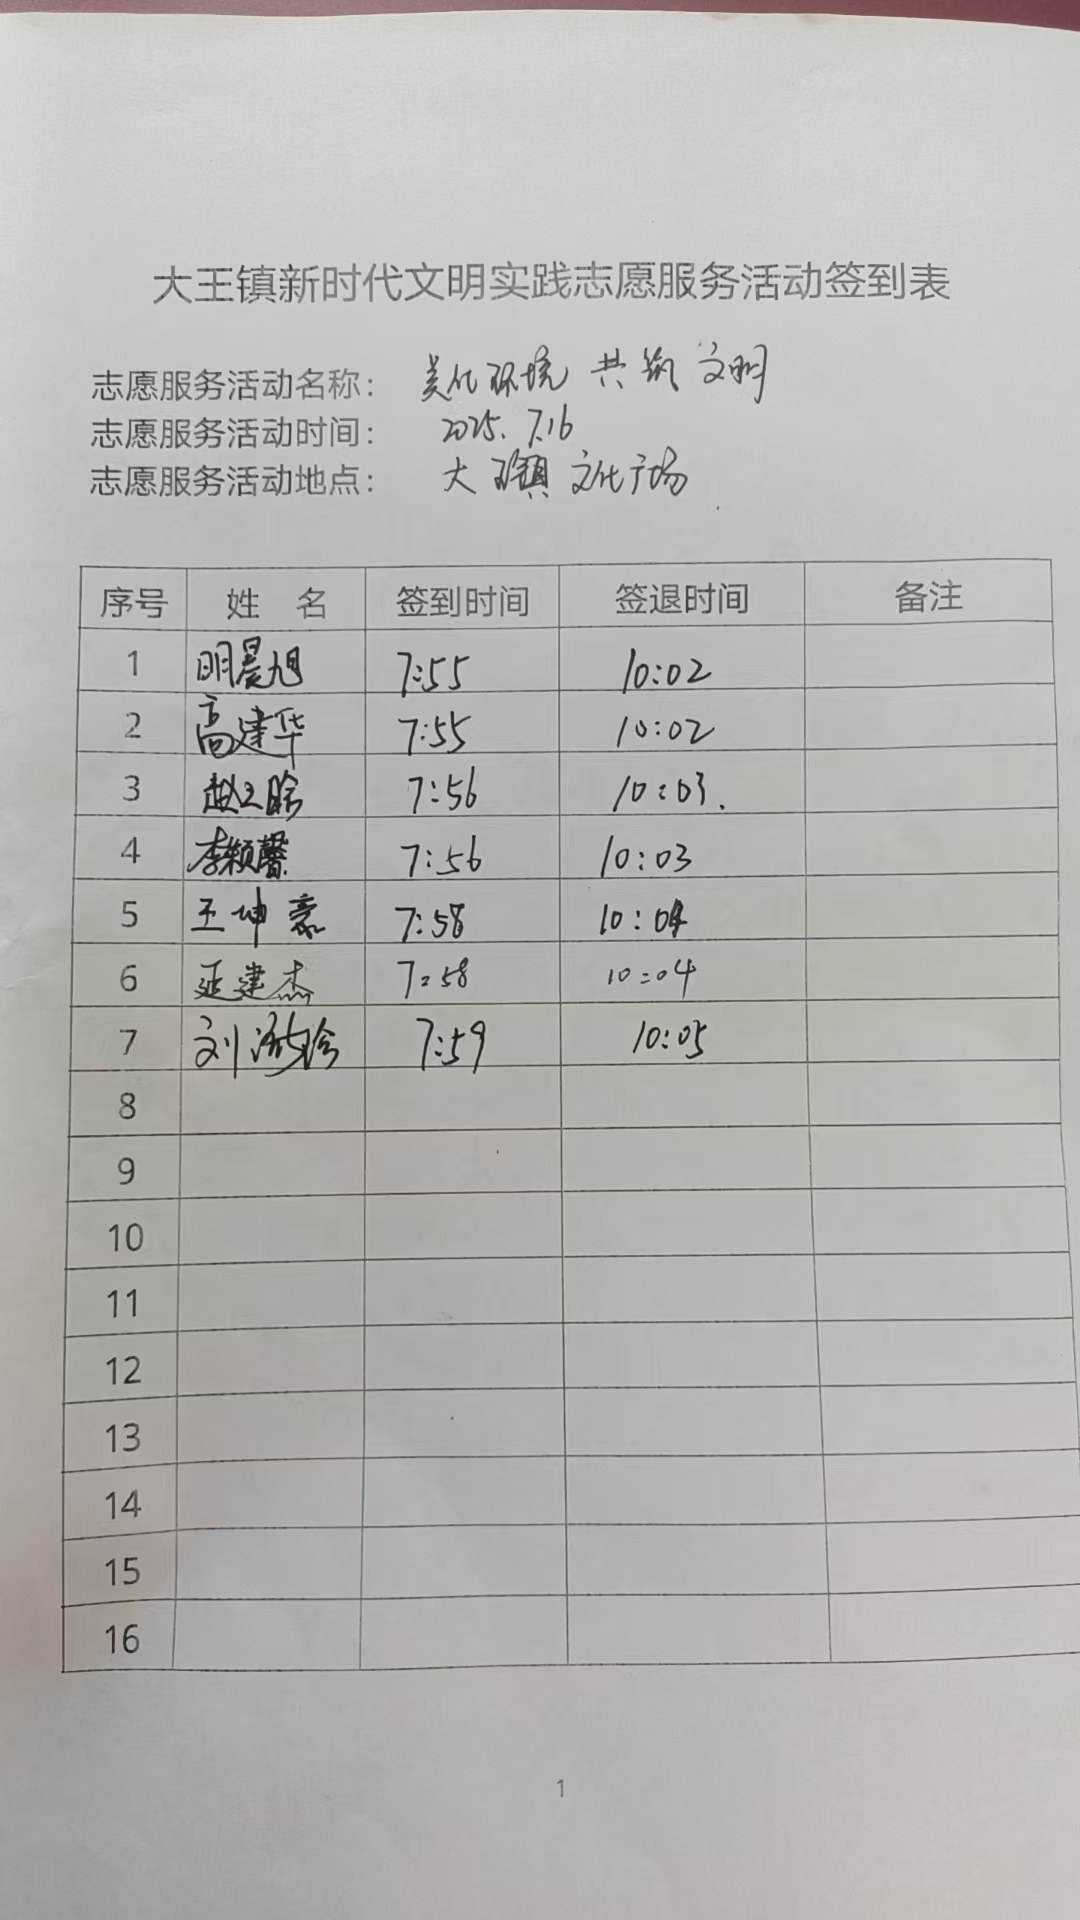 大王镇新时代文明实践志愿服务活动签到表
志愿服务活动名称： 美化环境 共筑 文明
志愿服务活动时间： 2025.7.16
志愿服务活动地点： 大王镇 文化广场
序号 姓 名 签到时间 签退时间 备注
1 明晨旭 7:55 10:02
2 高建华 7:55 10:02
3 赵 7:56 10:03.
4 李颖馨 7:56 10:03
5 王坤豪 7:58 10:04
6 延建杰 7:58 10:04
7 刘 7:59 10:05
8
9
10
11
12
13
14
15
16
1